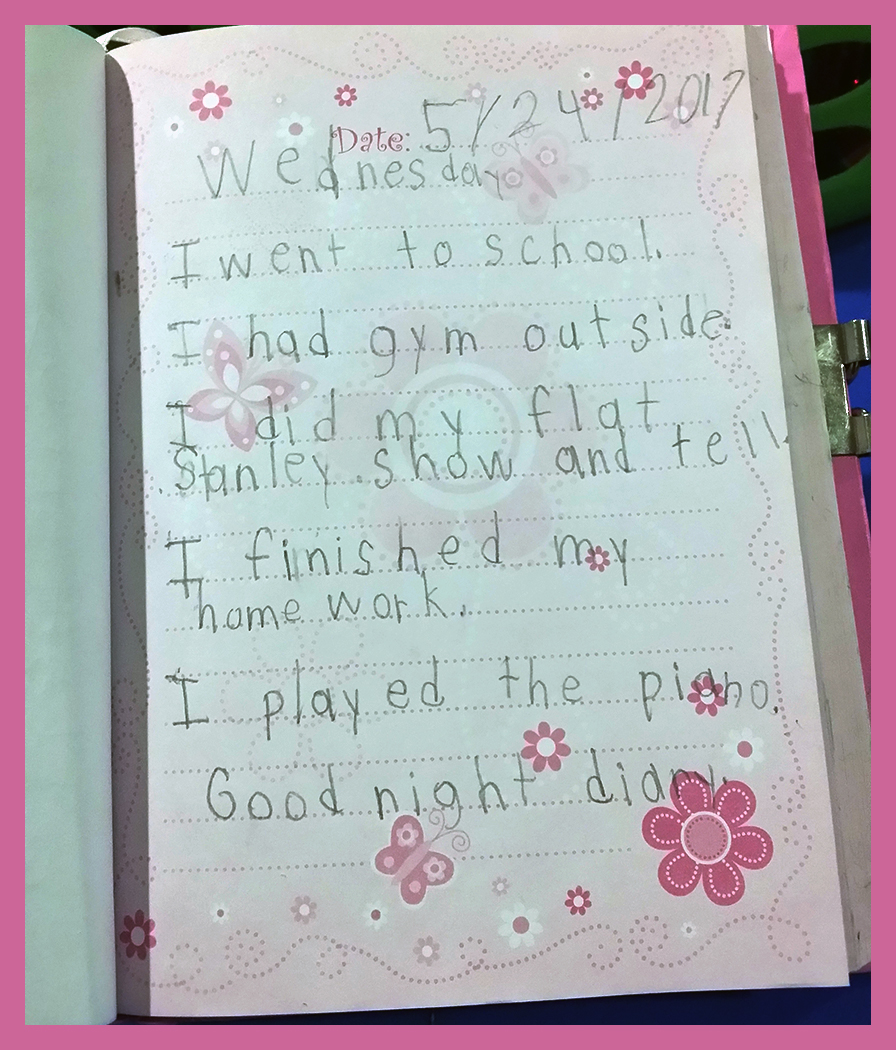 Date: 5/24/2017
Wednesday
I went to school.
I had gym outside.
I did my flat
Stanley show and tell.
I finished my
home work.
I played the piano.
Good night diary.